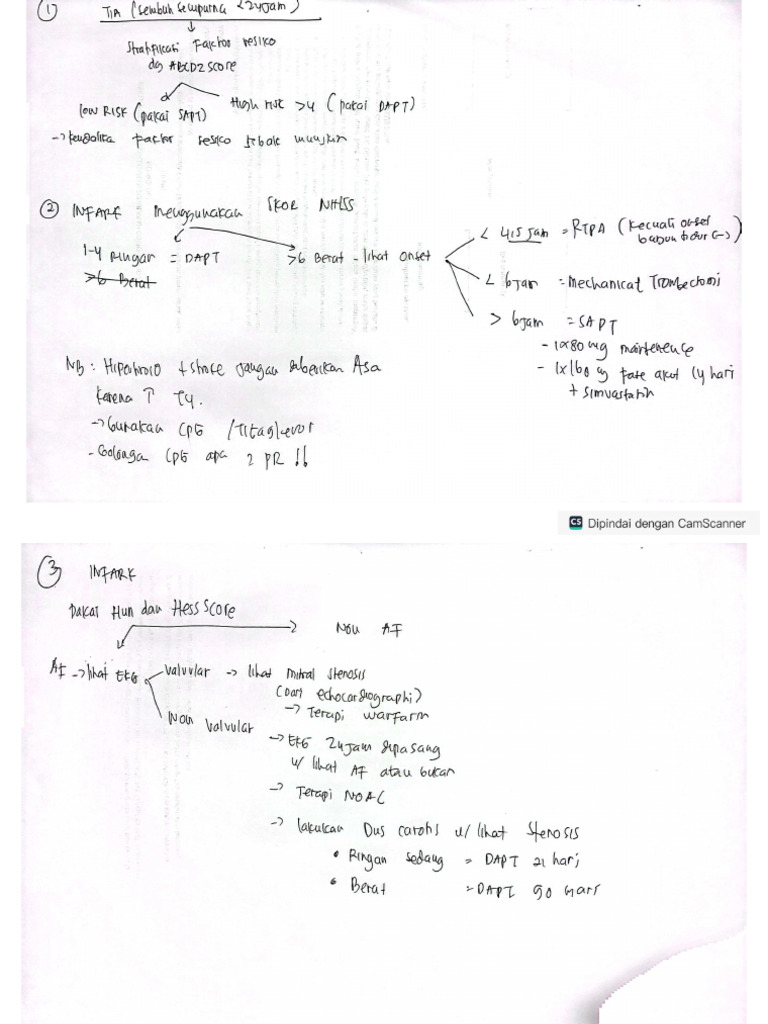 ① TIA (sembuh sempurna <24jam)
Stratifikasi Faktor resiko
dg ABCD2 SCORE
low RISK (pakai SAPT)
High risk >4 (pakai DAPT)
→ Kendalika faktor resiko sebaik mungkin
② INFARK menggunakan SKOR NHISS
1-4 Ringan = DAPT
>6 Berat
>6 Berat - lihat onset
< 4,5 jam = RTPA (kecuali onset
bangun tidur (-))
< 6 jam = Mechanical Trombectomi
> 6 jam = SAPT
- 1x80 mg maintenence
- 1x160 g fase akut 14 hari
+ simvastatin
NB: Hipertiroid + stroke jangan diberikan Asa
karena ↑ T4.
→ Gunakan CPG / Titagrelor
- Golongan CPG apa 2 PR !!
CS Dipindai dengan CamScanner
③ INFARK
Pakai Hun dan Hess Score
Non AF
AF → lihat EKG
Valvular → lihat mitral stenosis
(Dari echocardiographi)
→ Terapi warfarin
Non Valvular
→ EKG 24 jam dipasang
u/ lihat AF atau bukan
→ Terapi NOAC
→ lakukan Dus carotis u/ lihat stenosis
• Ringan sedang = DAPT 21 hari
• Berat = DAPT 90 hari